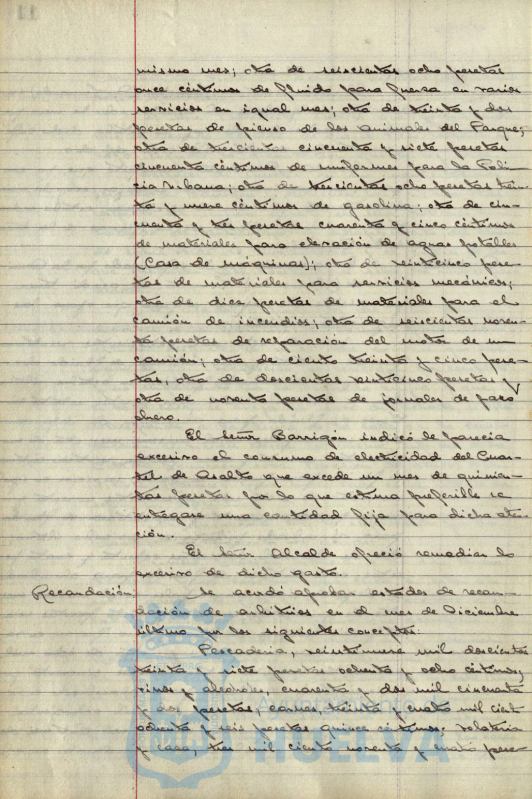 mismo mes; otra de seiscientas ocho pesetas
once céntimos de fluido para fuerza en varios
servicios en igual mes; otra de treinta y dos
pesetas de pienso de los animales del Parque;
otra de trescientas cincuenta y siete pesetas
cincuenta céntimos de uniformes para la Poli-
cia Urbana; otra de trescientas ocho pesetas trein-
ta y nueve céntimos de gasolina; otra de cin-
cuenta y tres pesetas cuarenta y cinco céntimos
de materiales para elevación de aguas potables
(Casa de máquinas); otra de veinticinco pese-
tas de materiales para servicios mecánicos;
otra de diez pesetas de materiales para el
camión de incendios; otra de seiscientas noven-
ta pesetas de reparación del motor de un
camión; otra de ciento treinta y cinco pese-
tas, otra de doscientas veinticinco pesetas y
otra de noventa pesetas de jornales de paro
obrero.
El Señor Barrigón indicó le parecia
excesivo el consumo de electricidad del Cuar-
tel de Asalto que excede un mes de quinien-
tas pesetas por lo que estima preferible se
entregase una cantidad fija para dicha aten-
ción.
El Señor Alcalde ofreció remediar lo
excesivo de dicho gasto.
Recaudación. Se acordó aprobar estados de recau-
dación de arbitrios en el mes de Diciembre
último por los siguientes conceptos:
Pescadería, veintinueve mil doscientas
treinta y siete pesetas ochenta y ocho céntimos;
vinos y alcoholes, cuarenta y dos mil cincuenta
y dos pesetas; carnes, treinta y cuatro mil ciento
ochenta y seis pesetas quince céntimos; volatería
y caza, tres mil ciento noventa y cuatro pese-
Ayuntamiento
HUELVA